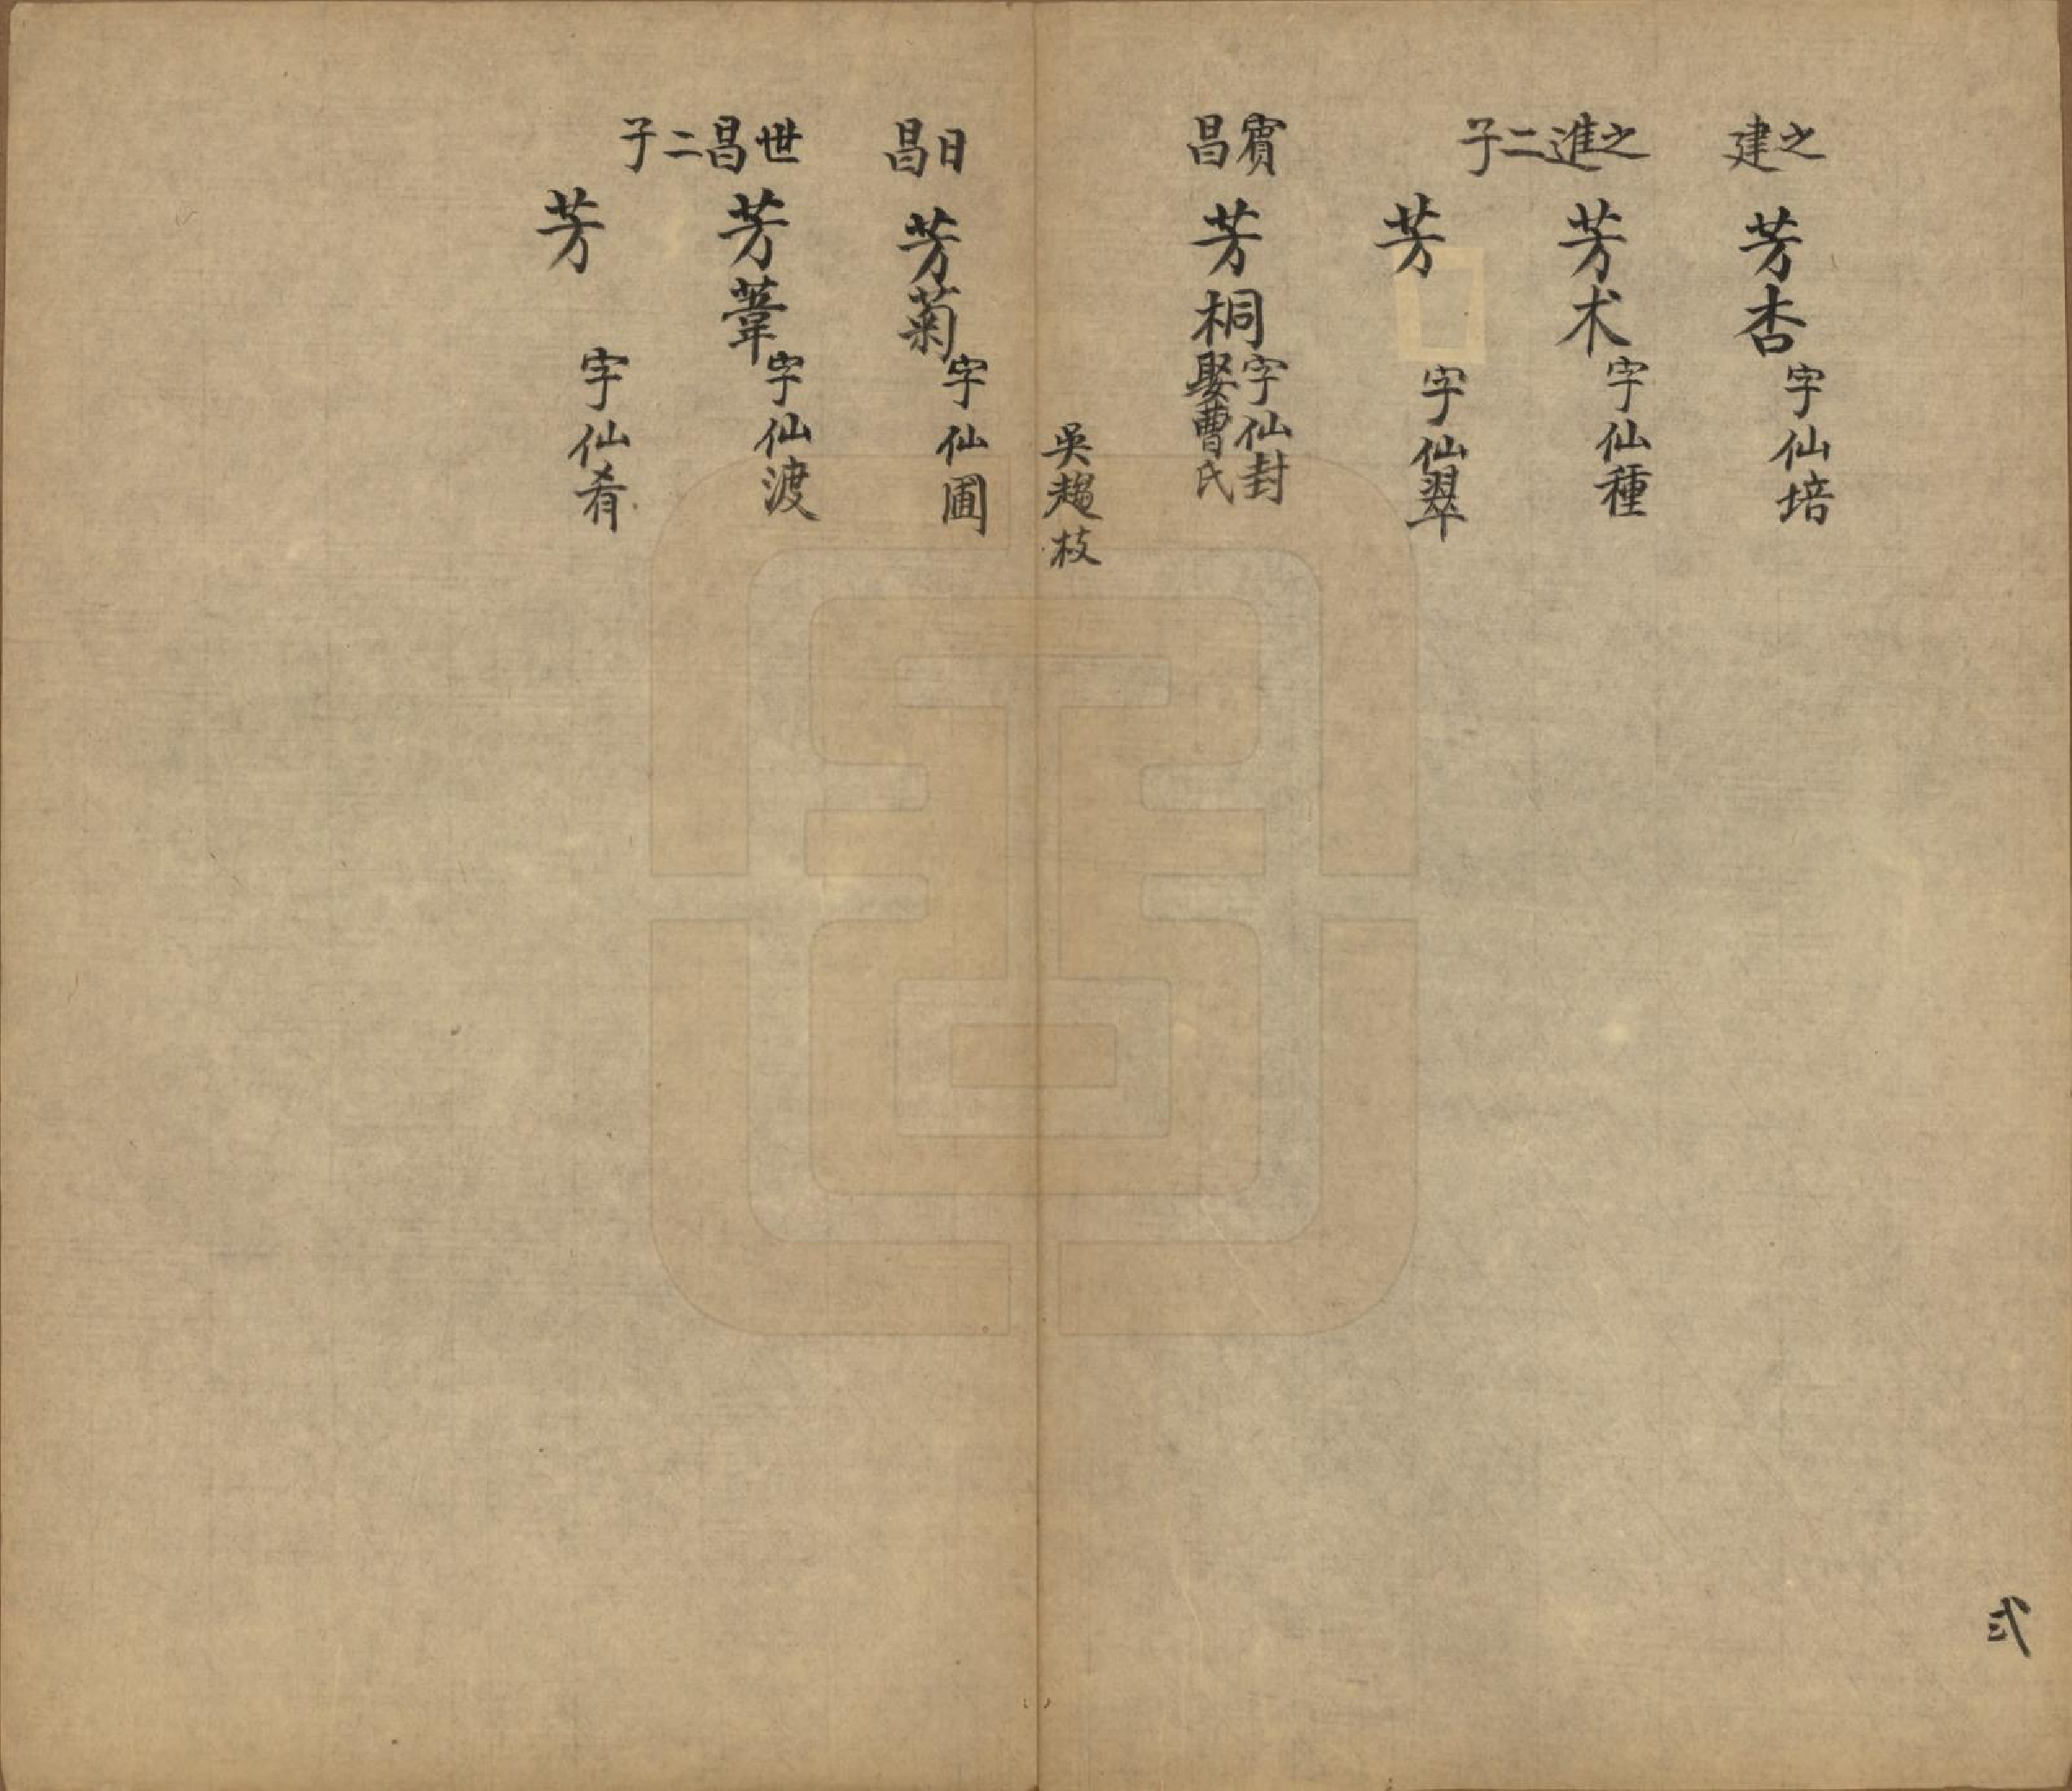 之建
芳杏
字仙培
之進二子
芳术
字仙種
芳
字仙翠
賓昌
芳桐
字仙封
娶曹氏
吳趨枝
日昌
芳菊
字仙圃
世昌二子
芳葦
字仙渡
芳
字仙肴